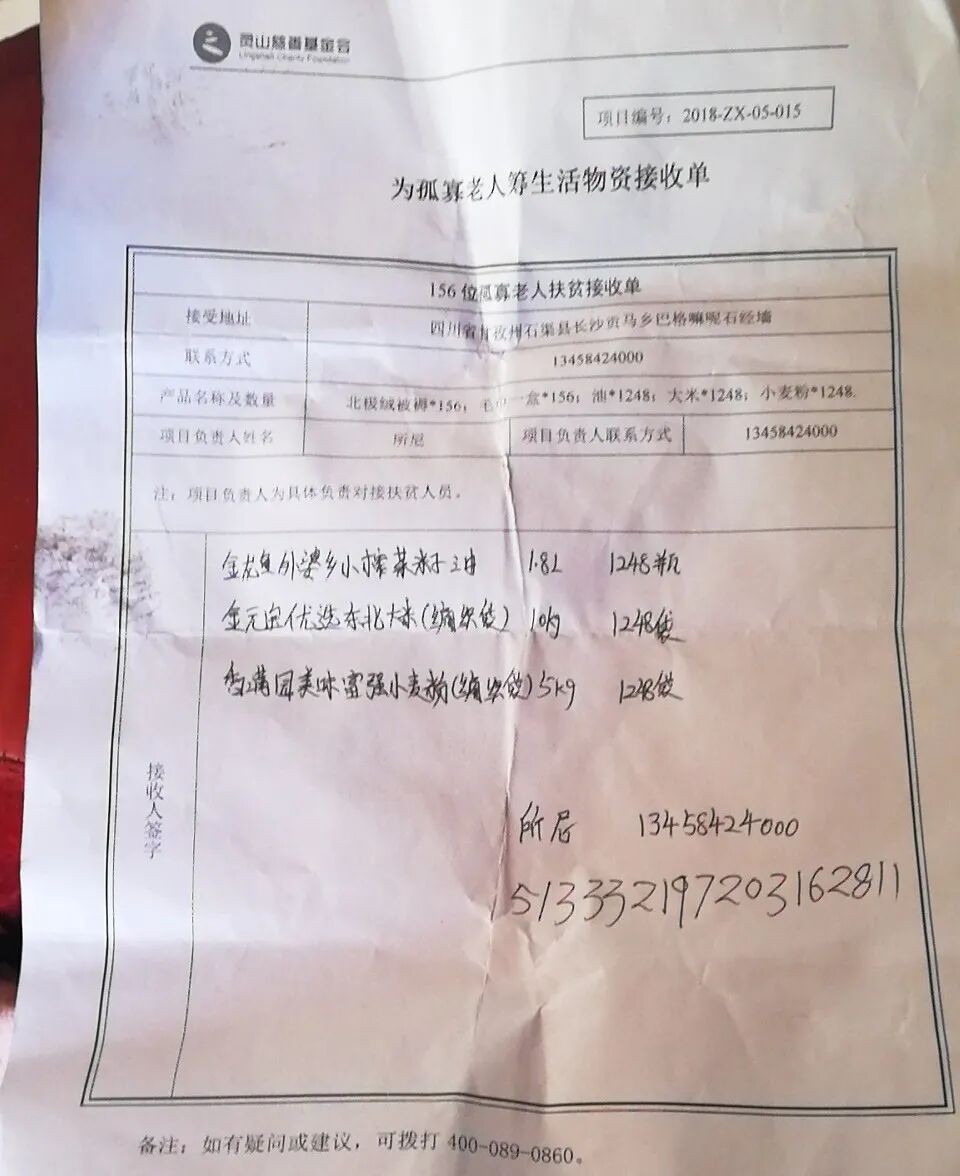 灵山慈善基金会
Lingshan Charity Foundation
项目编号：2018-ZX-05-015
为孤寡老人筹生活物资接收单
156位孤寡老人扶贫接收单
接受地址 四川省甘孜州石渠县长沙贡马乡巴格嘛呢石经墙
联系方式 13458424000
产品名称及数量 北极绒被褥*156；毛巾一盒*156；油*1248；大米*1248；小麦粉*1248.
项目负责人姓名 所尼 项目负责人联系方式 13458424000
注：项目负责人为具体负责对接扶贫人员。
金龙鱼外婆乡小榨菜籽油 1.8L 1248瓶
金元宝优选东北大米(编织袋) 10kg 1248袋
香满园美味富强小麦粉(编织袋) 5kg 1248袋
接收人签字
所尼 13458424000
513332197203162811
备注：如有疑问或建议，可拨打 400-089-0860。